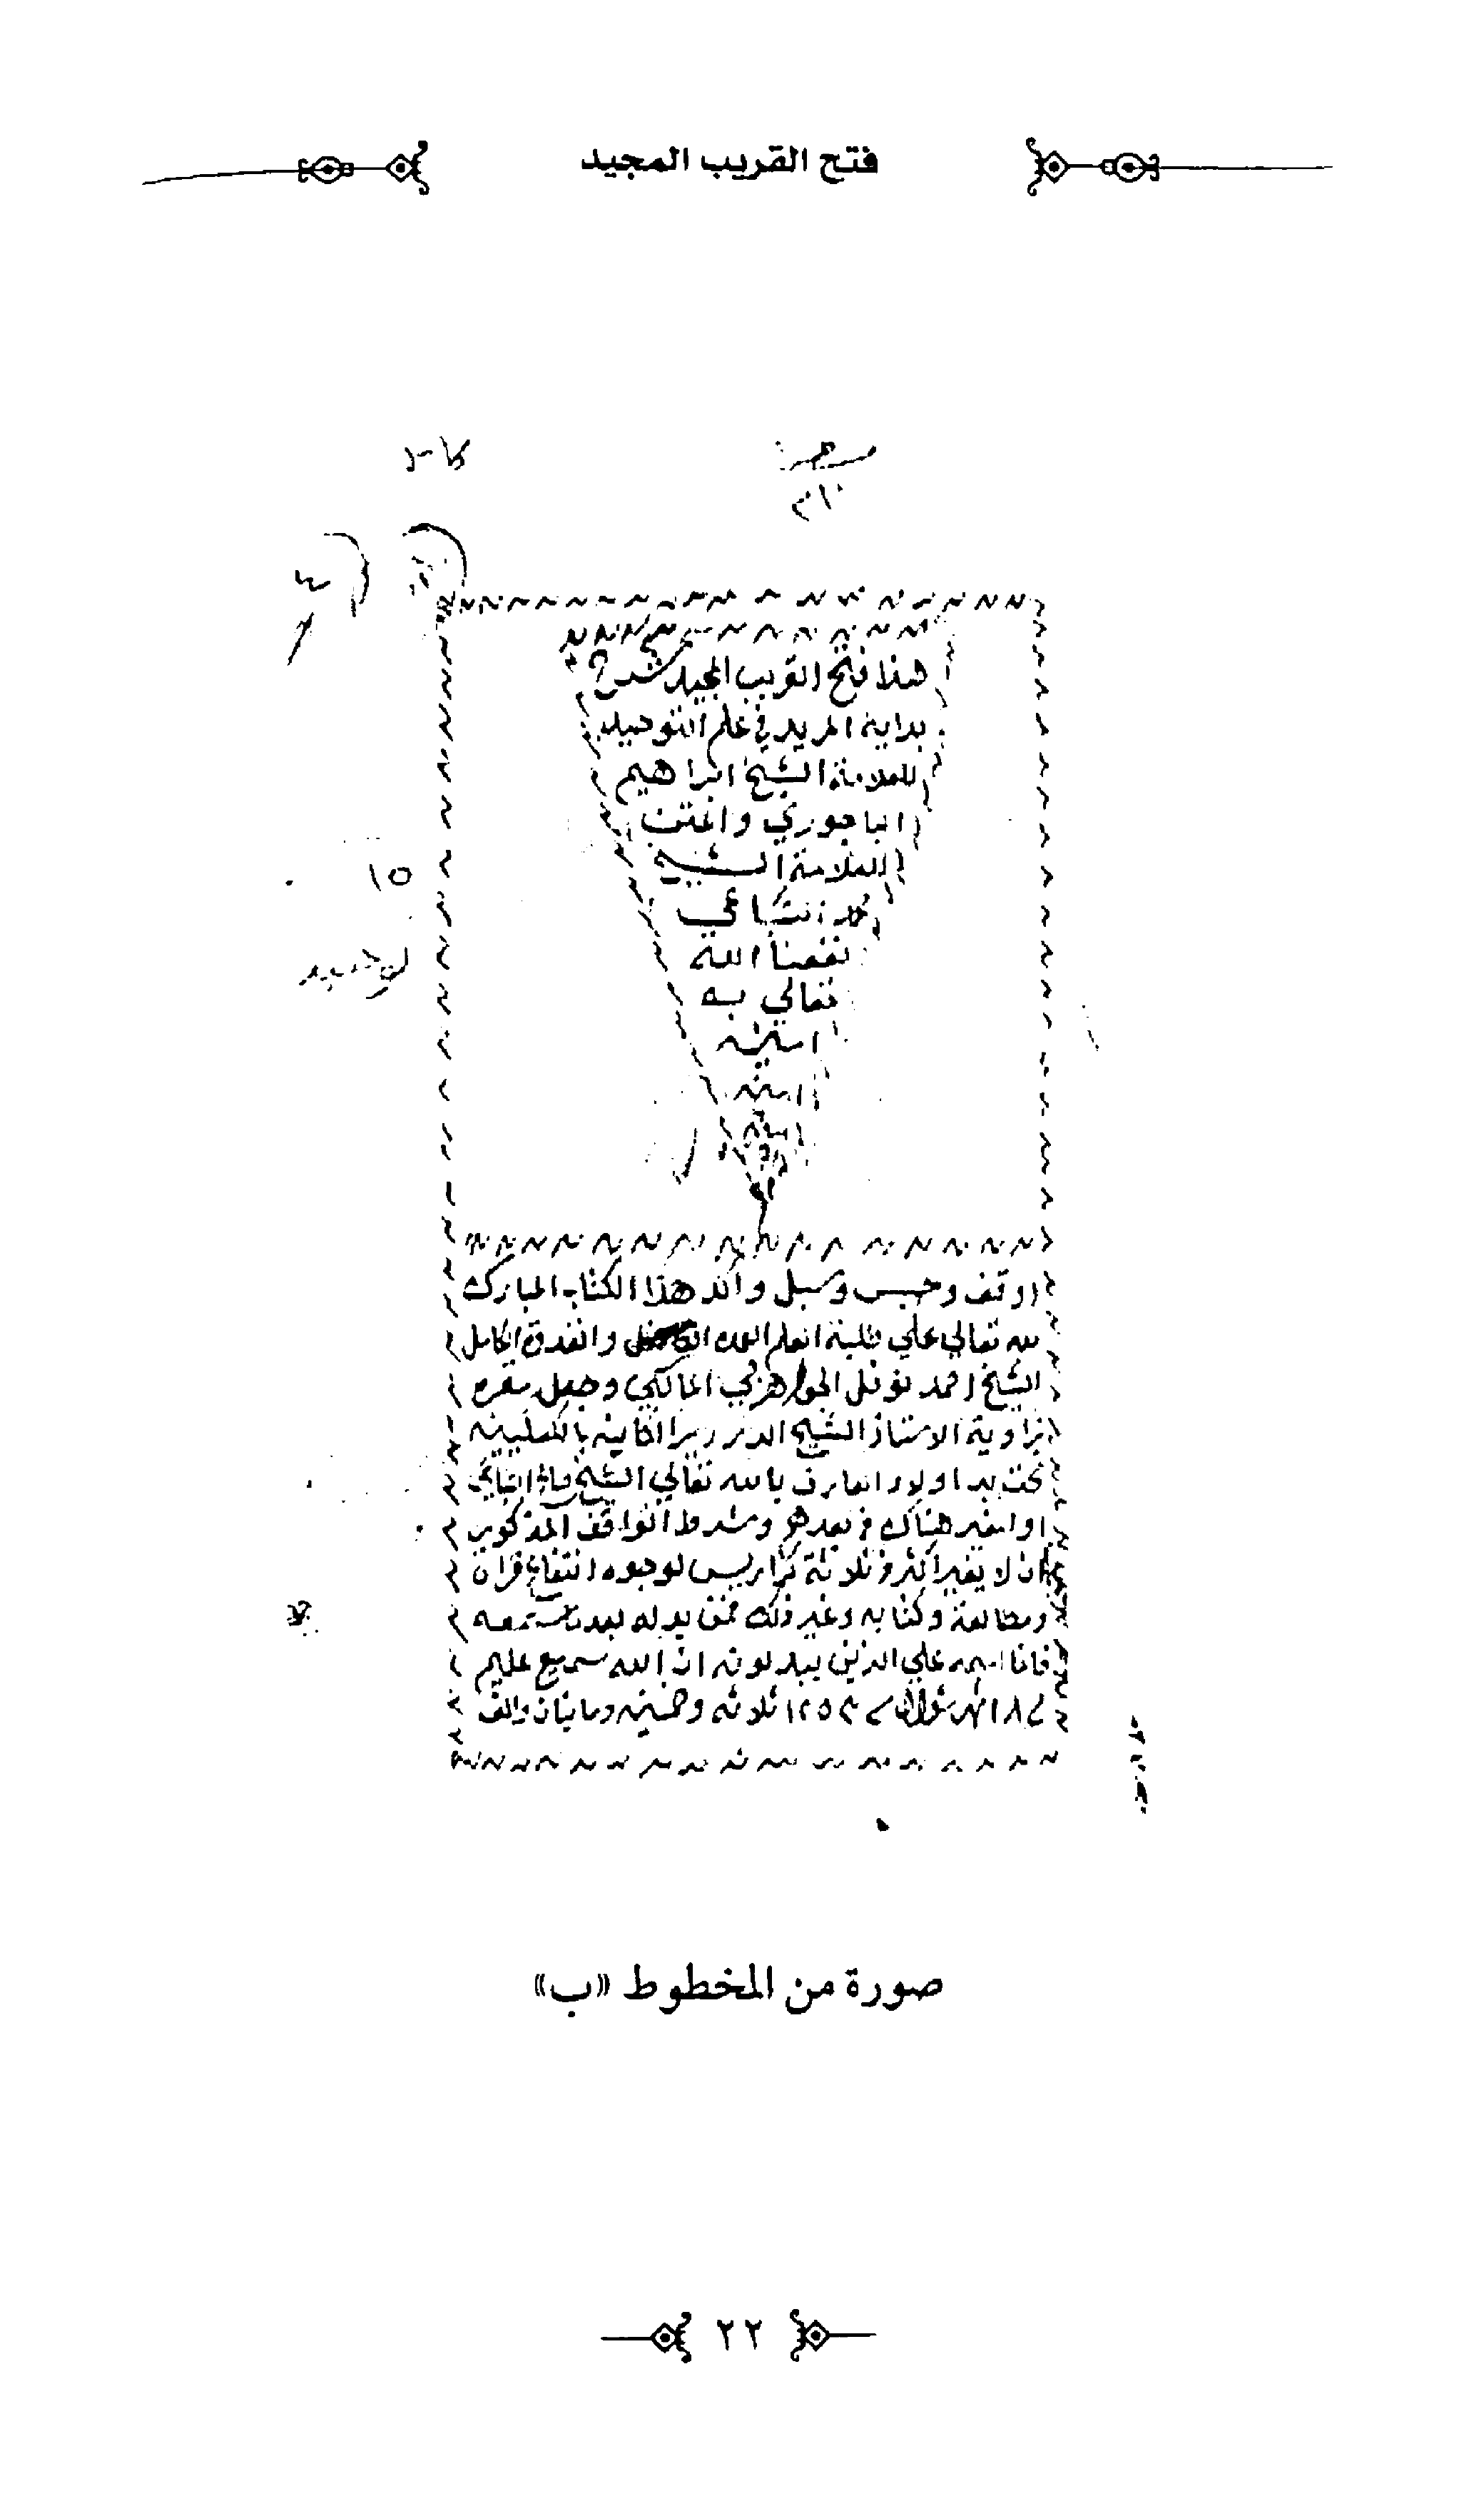 فتح القريب المجيد
هذا فتح القريب المجيد شرح
بداية المريد في علم التوحيد
للعلامة الشيخ ابراهيم
الباجوري والمتن
للعلامة الشيخ
السباعي
نفعنا الله
تعالي به
امين
امين
امين
١٥
توحيد
اوقف وحبس وسبل واكد هذا الكتاب المبارك
لله تعالي علي طلبة العلم والقدوة الكامل
الشيخ احمد المالكي وجعل مقره
بزاوية الاستاذ الشيخ الدردير الكاينة بالكعكيين
تحت يد اولاد العارف بالله تعالي الشيخ السباعي
او امغير هناك من بعدهم وشرط الواقف المذكور
ان لا يغير اكثر من ثلاثة كراريس لوجوه انتفاع قراة
ومطالعة وكتابه وغير ذلك فمن بدله بعدما سمعه
فانما اثمه علي الذين يبدلونه ان الله سميع عليم
١٨ شهر شوال ١٢٥٣ ثلاثه وخمسين ومايتان والف
صورة من المخطوط «ب»
٢٢